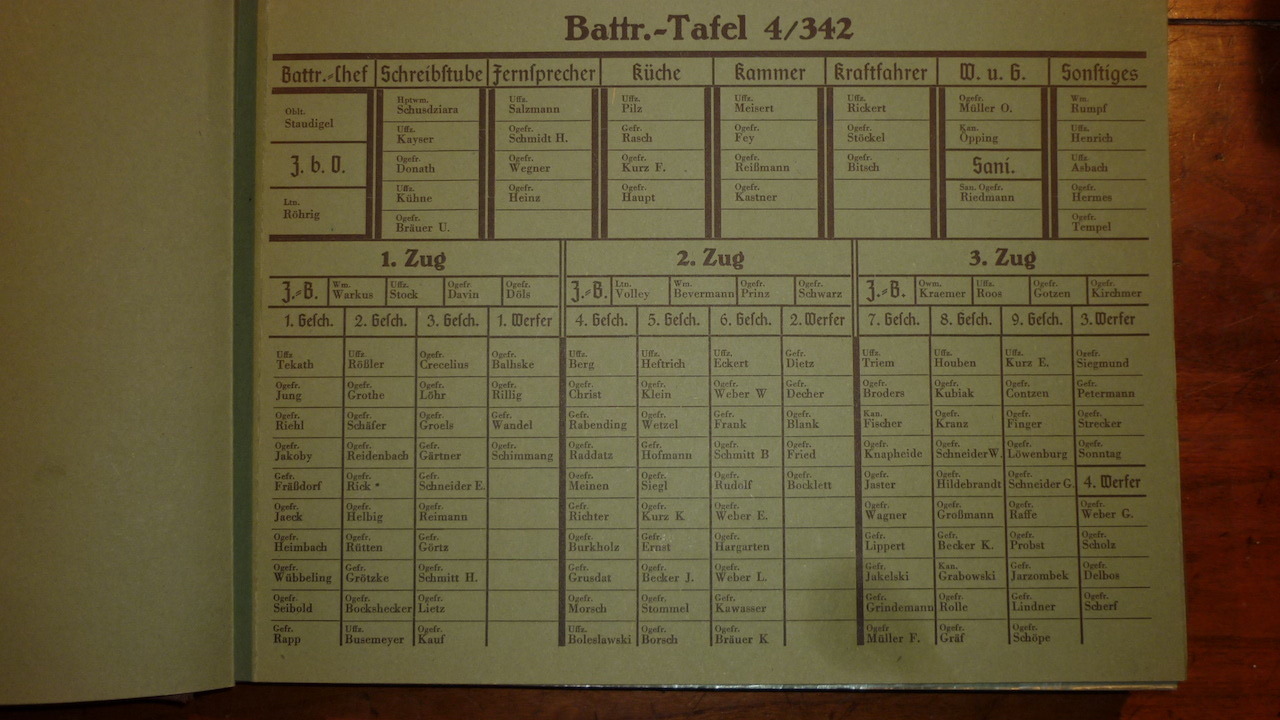 Battr.-Tafel 4/342
Battr.-Chef Schreibstube Fernsprecher Küche Kammer Kraftfahrer W. u. G. Sonstiges
Oblt. Staudigel
Z. b. O.
Ltn. Röhrig
Hptwm. Schusdziara
Uffz. Kayser
Ogefr. Donath
Uffz. Kühne
Ogefr. Bräuer U.
Uffz. Salzmann
Ogefr. Schmidt H.
Ogefr. Wegner
Ogefr. Heinz
Uffz. Pilz
Gefr. Rasch
Ogefr. Kurz F.
Ogefr. Haupt
Uffz. Meisert
Ogefr. Fey
Ogefr. Reißmann
Ogefr. Kastner
Uffz. Rickert
Ogefr. Stöckel
Ogefr. Bitsch
Ogefr. Müller O.
Kan. Öpping
Sani.
San. Ogefr. Riedmann
Wm. Rumpf
Uffz. Henrich
Uffz. Asbach
Ogefr. Hermes
Ogefr. Tempel
1. Zug
Z.-B. Wm. Warkus Uffz. Stock Ogefr. Davin Ogefr. Döls
1. Gesch. 2. Gesch. 3. Gesch. 1. Werfer
Uffz. Tekath
Ogefr. Jung
Ogefr. Riehl
Ogefr. Jakoby
Gefr. Fräßdorf
Ogefr. Jaeck
Ogefr. Heimbach
Ogefr. Wübbeling
Ogefr. Seibold
Gefr. Rapp
Uffz. Rößler
Ogefr. Grothe
Ogefr. Schäfer
Ogefr. Reidenbach
Ogefr. Rick *
Ogefr. Helbig
Ogefr. Rütten
Gefr. Grötzke
Ogefr. Bockshecker
Uffz. Busemeyer
Ogefr. Crecelius
Ogefr. Löhr
Ogefr. Groels
Gefr. Gärtner
Gefr. Schneider E.
Ogefr. Reimann
Gefr. Görtz
Ogefr. Schmitt H.
Ogefr. Lietz
Ogefr. Kauf
Ogefr. Balhske
Ogefr. Rillig
Gefr. Wandel
Ogefr. Schimmang
2. Zug
Z.-B. Ltn. Volley Wm. Bevermann Ogefr. Prinz Ogefr. Schwarz
4. Gesch. 5. Gesch. 6. Gesch. 2. Werfer
Uffz. Berg
Ogefr. Christ
Gefr. Rabending
Ogefr. Raddatz
Ogefr. Meinen
Gefr. Richter
Gefr. Burkholz
Gefr. Grusdat
Ogefr. Morsch
Uffz. Boleslawski
Uffz. Heftrich
Ogefr. Klein
Ogefr. Wetzel
Gefr. Hofmann
Ogefr. Siegl
Ogefr. Kurz K.
Gefr. Ernst
Ogefr. Becker J.
Ogefr. Stommel
Ogefr. Borsch
Uffz. Eckert
Ogefr. Weber W
Gefr. Frank
Ogefr. Schmitt B
Ogefr. Rudolf
Ogefr. Weber E.
Ogefr. Hargarten
Ogefr. Weber L.
Gefr. Kawasser
Ogefr. Bräuer K
Gefr. Dietz
Gefr. Decher
Ogefr. Blank
Ogefr. Fried
Ogefr. Bocklett
3. Zug
Z.-B. Owm. Kraemer Uffz. Roos Ogefr. Gotzen Ogefr. Kirchmer
7. Gesch. 8. Gesch. 9. Gesch. 3. Werfer
Uffz. Triem
Ogefr. Broders
Kan. Fischer
Ogefr. Knapheide
Ogefr. Jaster
Ogefr. Wagner
Gefr. Lippert
Gefr. Jakelski
Gefr. Grindemann
Ogefr Müller F.
Uffz. Houben
Ogefr. Kubiak
Ogefr. Kranz
Ogefr. Schneider W.
Ogefr. Hildebrandt
Ogefr. Großmann
Gefr. Becker K.
Kan. Grabowski
Ogefr. Rolle
Ogefr. Gräf
Uffz. Kurz E.
Ogefr. Contzen
Ogefr. Finger
Ogefr. Löwenburg
Ogefr. Schneider G.
Ogefr. Raffe
Ogefr. Probst
Gefr. Jarzombek
Ogefr. Lindner
Ogefr. Schöpe
Ogefr. Siegmund
Gefr. Petermann
Ogefr. Strecker
Ogefr. Sonntag
4. Werfer
Ogefr. Weber G.
Ogefr. Scholz
Ogefr. Delbos
Ogefr. Scherf